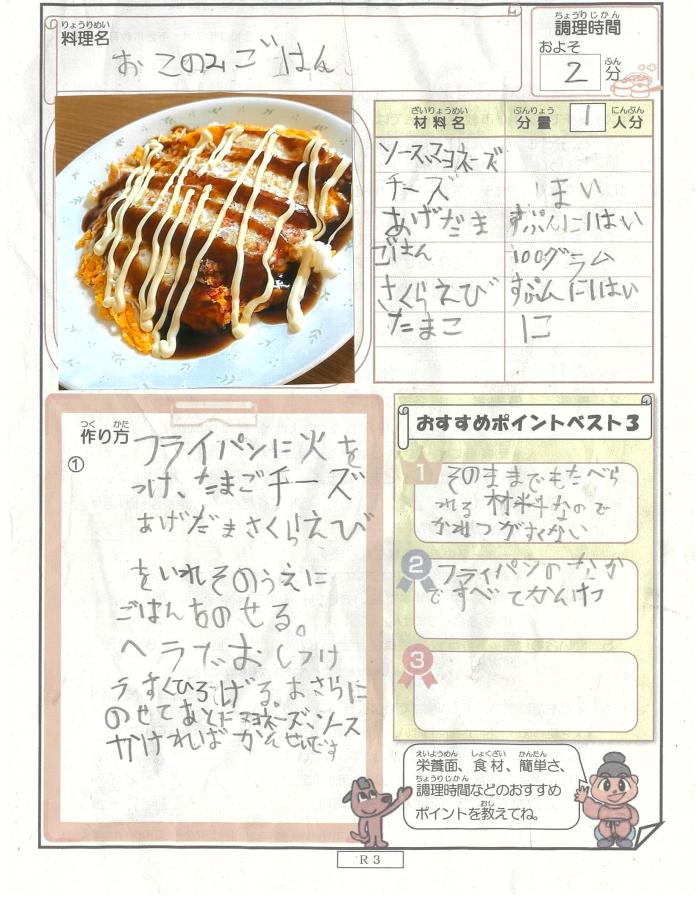 りょうりめい
料理名
おこのみごはん
ちょうりじかん
調理時間
およそ
2
ふん
分
ざいりょうめい
材料名
ぶんりょう
分量
1
にんぶん
人分
ソース、マヨネーズ
チーズ 1まい
あげだま すぷんに1はい
ごはん 100グラム
さくらえび すぷんに1はい
たまこ に
つく かた
作り方
① フライパンに火を
つけ、たまごチーズ
あげだまさくらえび
をいれそのうえに
ごはんをのせる。
ヘラでおしつけ
うすくひろげる。おさらに
のせてあとはマヨネーズ、ソース
かければかんせいです
おすすめポイントベスト3
1
そのままでもたべら
れる材料なので
かねつがすくない
2
フライパンのなか
ですべてかんけつ
3
えいようめん しょくざい かんたん
栄養面、食材、簡単さ、
ちょうりじかん
調理時間などのおすすめ
おし
ポイントを教えてね。
R3